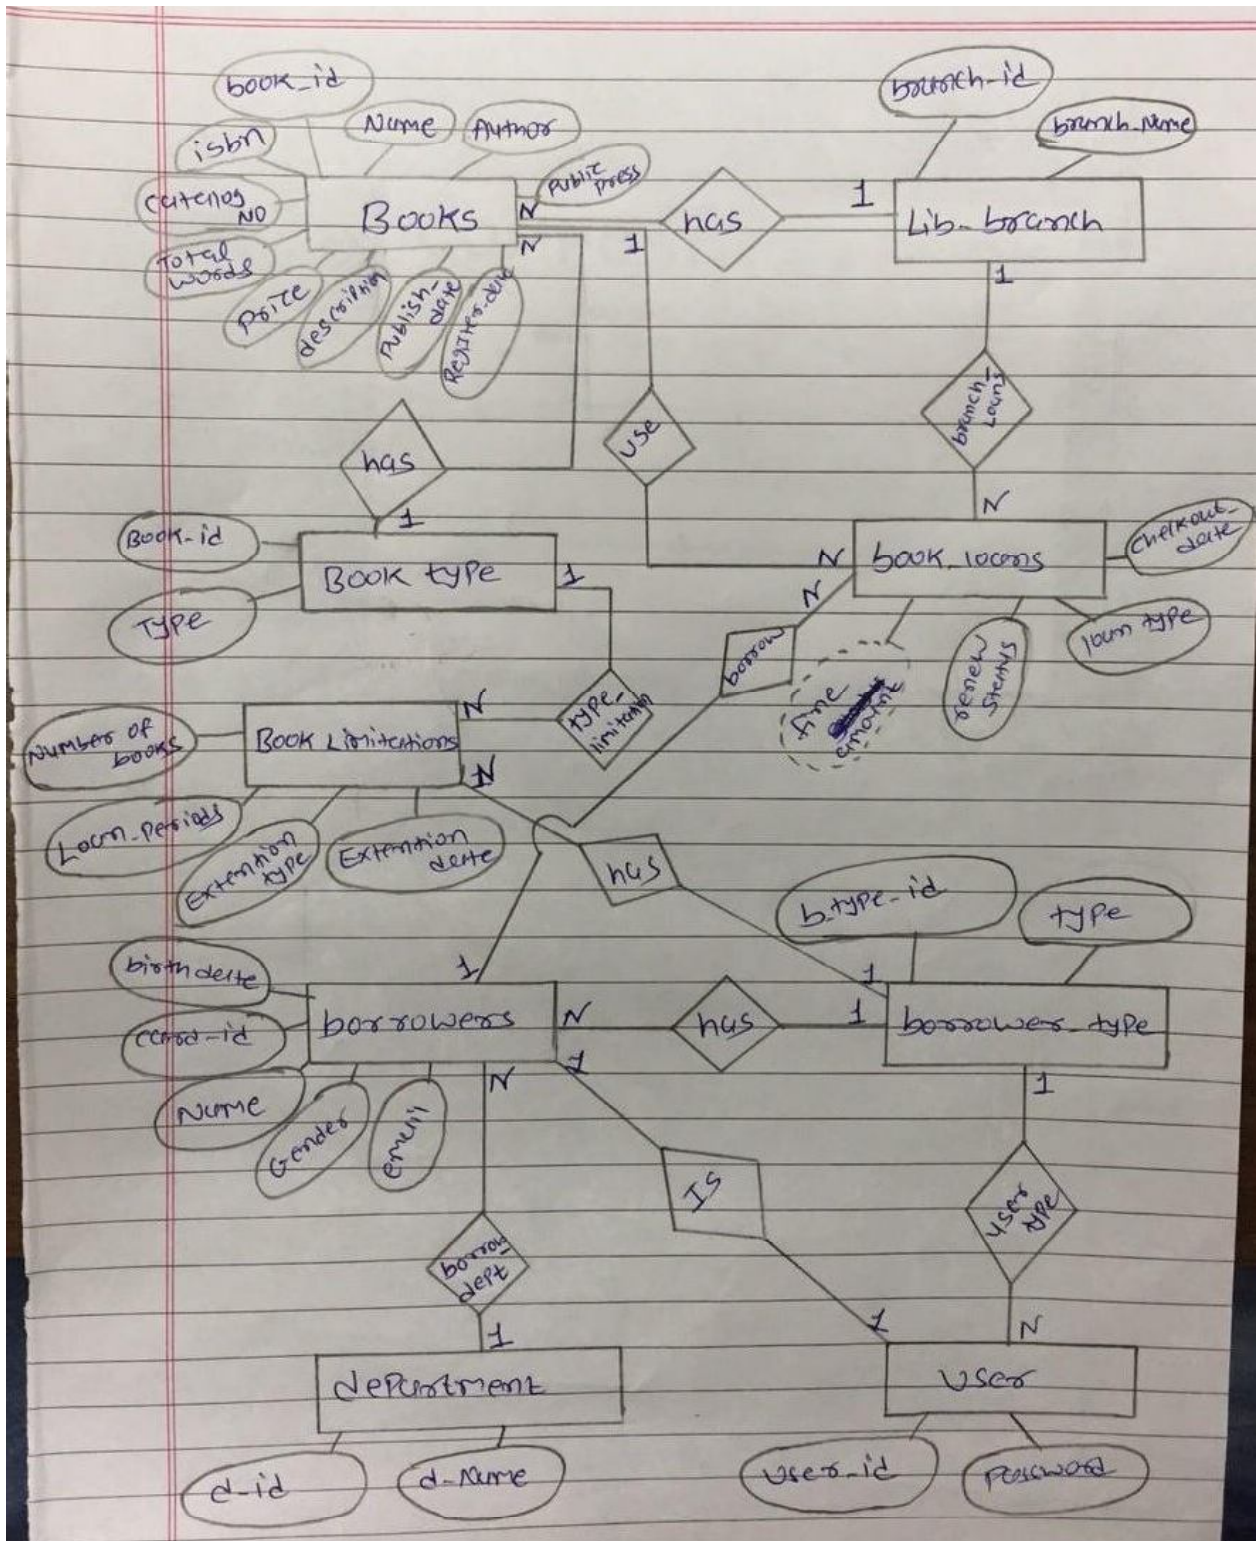 book_id
branch-id
isbn
Name
Author
branch_Name
Public
Press
catalog
NO
Books
N
has
1
Lib-branch
N
1
1
Total
words
Price
description
Publish_
date
branch_
Loans
has
use
N
1
Book-id
Book type
1
N
book_loans
checkout_
date
Type
N
borrow
loan type
renew
Status
fine
amount
Number of
books
Book Limitations
N
type_
limitation
N
Loan-periods
Extention
type
Extention
date
has
b_type_id
type
birthdate
1
1
borrowers
N
has
1
borrower_type
card-id
1
N
1
Name
Gender
email
IS
user
type
borrow_
dept
1
1
N
department
user
d-id
d-Name
user_id
password